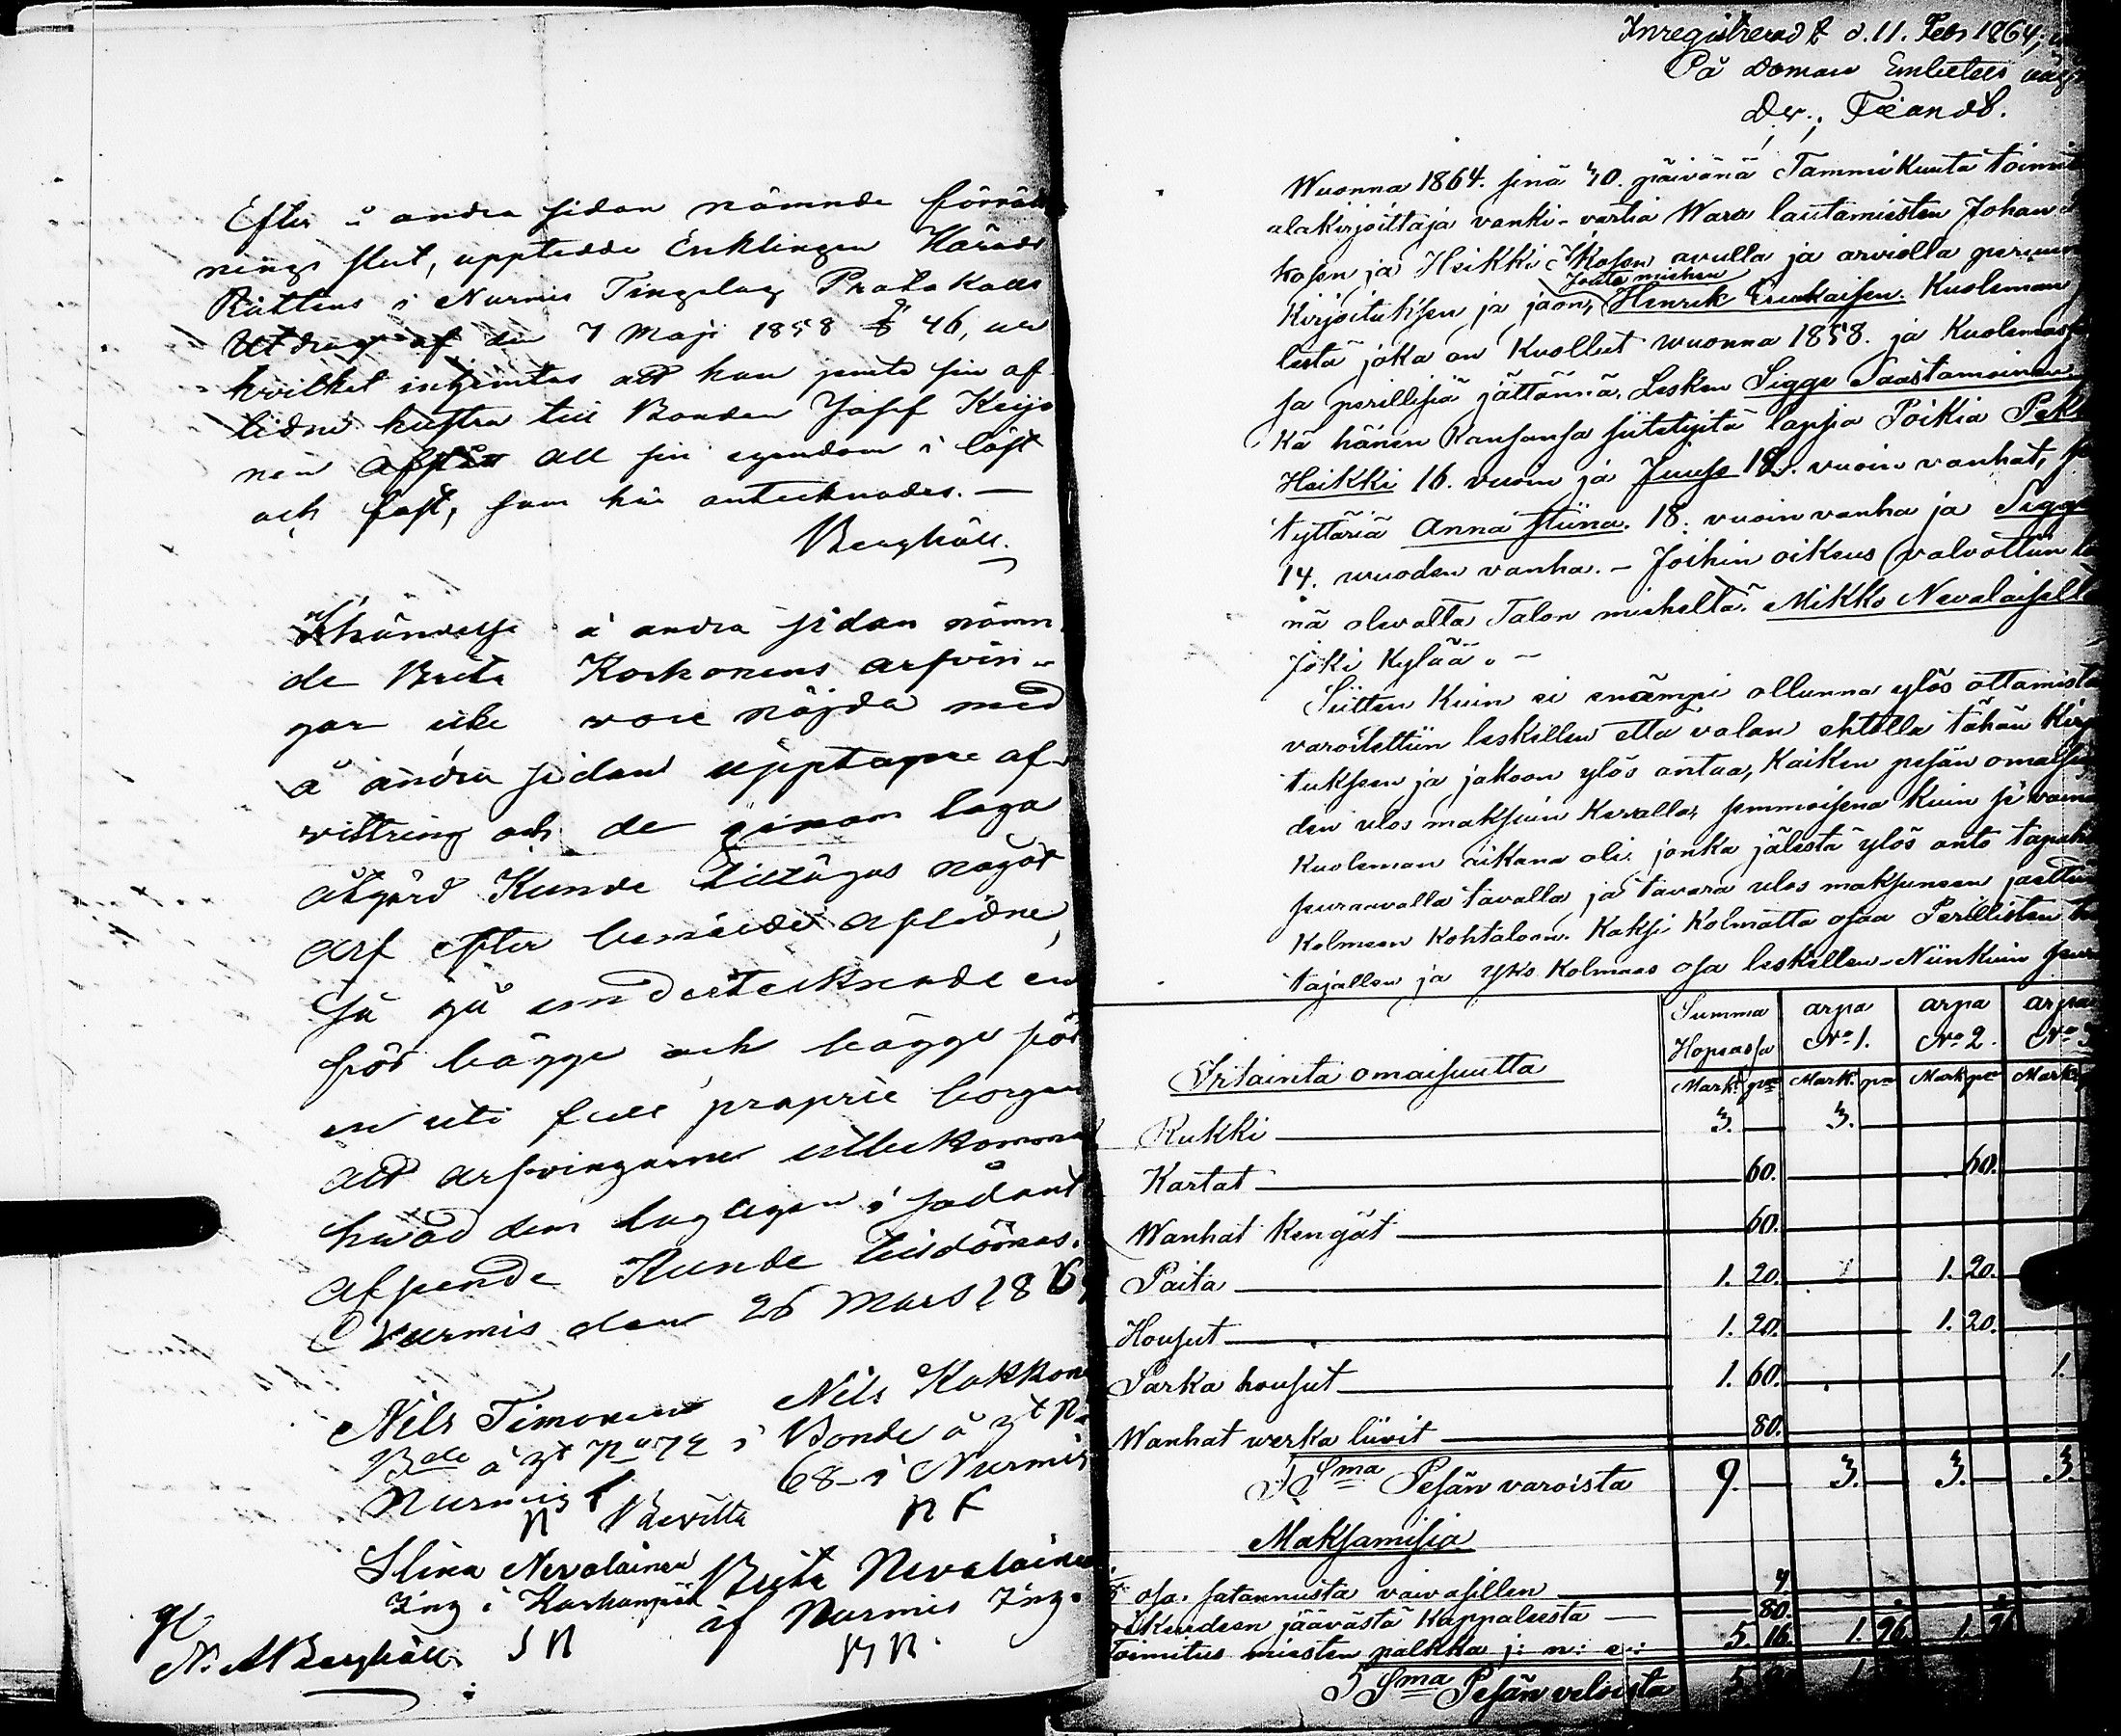 Efter å andra sidan nämnde förrätt
nings slut, uppteddе Enklingen Härads
Rättens i Nurmis Tingslag Protokolls
Utdrag af den 7 Maji 1858 § 46, ur
hvilket inhemtas att han jemte sin af
lidne hustru till Bonden Josef Keijo
nen afstått all sin egendom i löst
och fast, som här antecknades. —
Berghäll.
Ihändelse å andra sidan nämn
de Brita Korhonens arfvin-
gar icke wore nöjda med
å andra sidan upptagne af
wittring och de genom laga
åtgärd Kunde tillägas något
arf efter bemälde aflidne,
så gå undertecknade en
för bägge och bägge för
en uti full proprie borgen
att arfvingarne utbekomma
hwad dem lagligen i sådant
afseende Kunde tilldömas.
Nurmis den 26 Mars 186
Nils Timonen Nils Kakkon
Bde å No 72 i Bonde å
Nurmis 68 i Nurmis
Stina Nevalainen Brita Nevalainen
Ing i af Nurmis Ing.
S N B N.
N. A Berghäll
Inregistrerad d. 11. Febr 1864;
På Domare Embetets
Wuonna 1864. sinä 30. päivänä Tammikuuta toimit
alakirjoittaja vanki-vartia Wara lautamiesten Johan
kosen ja Heikki Ikosen avulla ja arviolla perun
Joutemiehen
Kirjoituksen ja jaon, Henrik Kuoleman
lestä joka on Kuollut wuonna 1858. ja Kuolemas
sa perillisiä jättännä. Lesken Sigge Saastamoinen
kä hänen Kansansa siitetyitä lapsia Poikia Pek
Heikki 16. vuoin ja Juuse 12. vuoin vanhat,
tyttäriä Anna Stiina. 18. vuoin vanha ja Sigge
14. wuoden vanha. — Joihin oikeus valvottiin
nä olevalta Talon mieheltä. Mikko Nevalaiselt
joki Kylää. —
Siitten Kuin ei enämpi ollunna ylös ottamista
varoitettiin leskellen että valan ehtolla tähän Kirj
tuksen ja jakoon ylös antaa, Kaiken pesän omaisu
den ulos maksuin Keralla, semmoisena Kuin se
Kuoleman aikana oli. jonka jälestä ylös anto tapah
seuraavalla tavalla ja tavara ulos maksuneen jaettiin
Kolmeen Kohtaloon. Kaksi Kolmatta osaa Perillisten
tajallen ja yks Kolmas osa leskellen. Niinkuin seur
Summa arpa arpa arpa
Hopeassa No 1. No 2. No 3
Irtainta omaisuutta Mark. pn Mark. pn Mark pn Mark
Rukki — 3. — 3. —
Kartat — 60. — 60. —
Wanhat Kengät — 60. —
Paita — 1. 20. — 1. 20.
Housut — 1. 20. — 1. 20. —
Sarka housut — 1. 60. — 1.
Wanhat werka liivit — 80. —
Sma Pesän varoista 9. — 3. — 3. — 3.
Maksamisia
osa. satannusta vaivasillen —
jäävästä Kappaleesta — 80.
Toimitus miesten palkka j: n: e: 5. 16. 1. 96 1.
Sma Pesän veloista 5